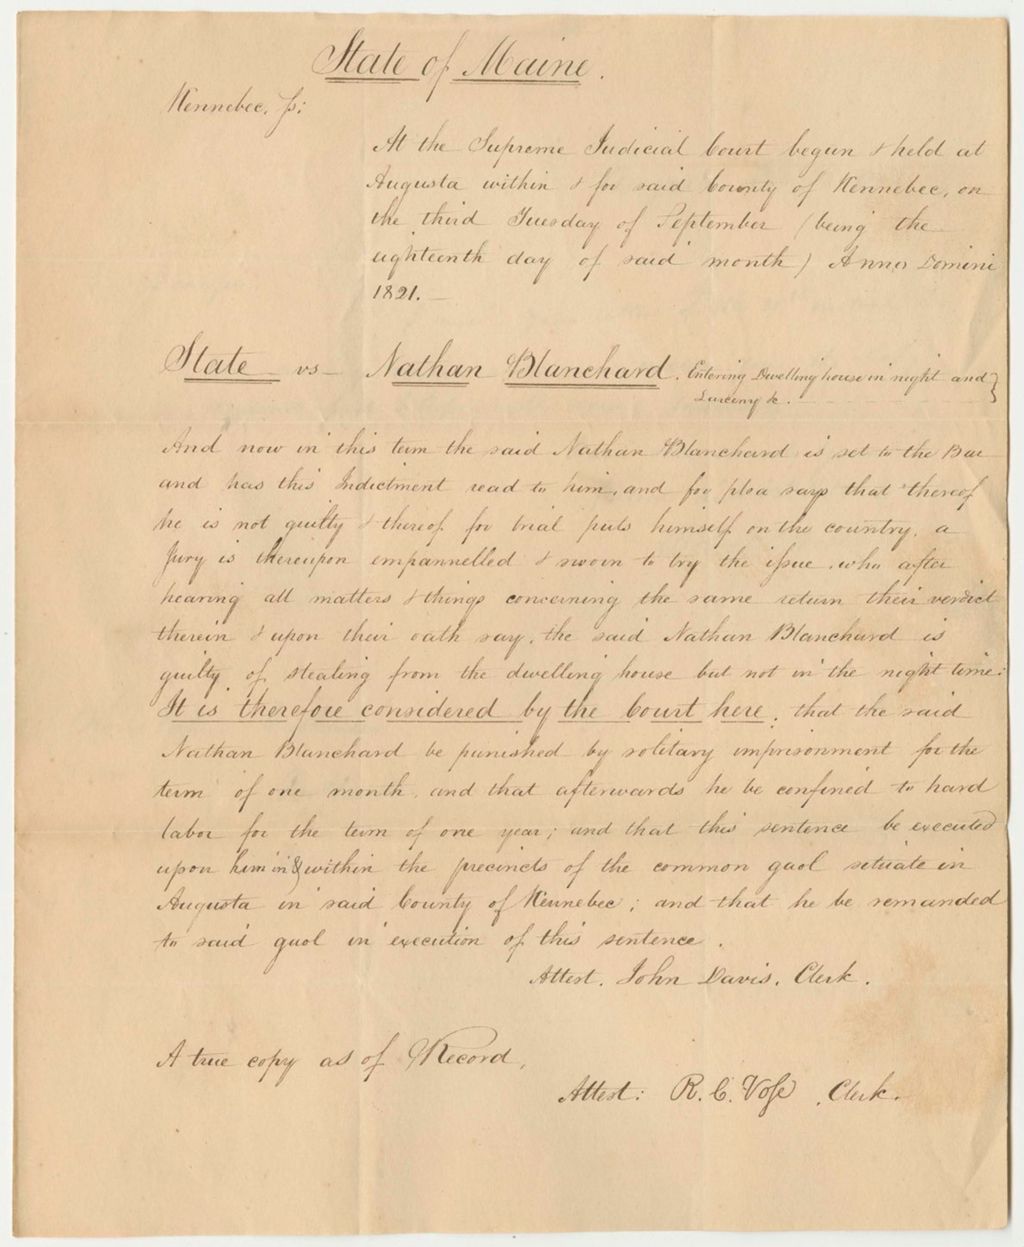 State of Maine.
Kennebec, ss:
At the Supreme Judicial Court begun & held at
Augusta within & for said County of Kennebec, on
the third Tuesday of September (being the
eighteenth day of said month) Anno Domini
1821. —
State — vs — Nathan Blanchard. Entering Dwelling house in night and
Larceny &c.
And now in this term the said Nathan Blanchard is set to the Bar
and has this Indictment read to him, and for plea says that thereof
he is not guilty & thereof for trial puts himself on the country, a
Jury is thereupon empannelled & sworn to try the issue, who after
hearing all matters & things concerning the same return their verdict
therein & upon their oath say, the said Nathan Blanchard is
guilty of stealing from the dwelling house but not in the night time:
It is therefore considered by the Court here, that the said
Nathan Blanchard be punished by solitary imprisonment for the
term of one month, and that afterwards he be confined to hard
labor for the term of one year; and that this sentence be executed
upon him in & within the precincts of the common gaol situate in
Augusta in said County of Kennebec; and that he be remanded
to said gaol in execution of this sentence.
Attest. John Davis, Clerk.
A true copy as of Record,
Attest: R. C. Vose, Clerk.